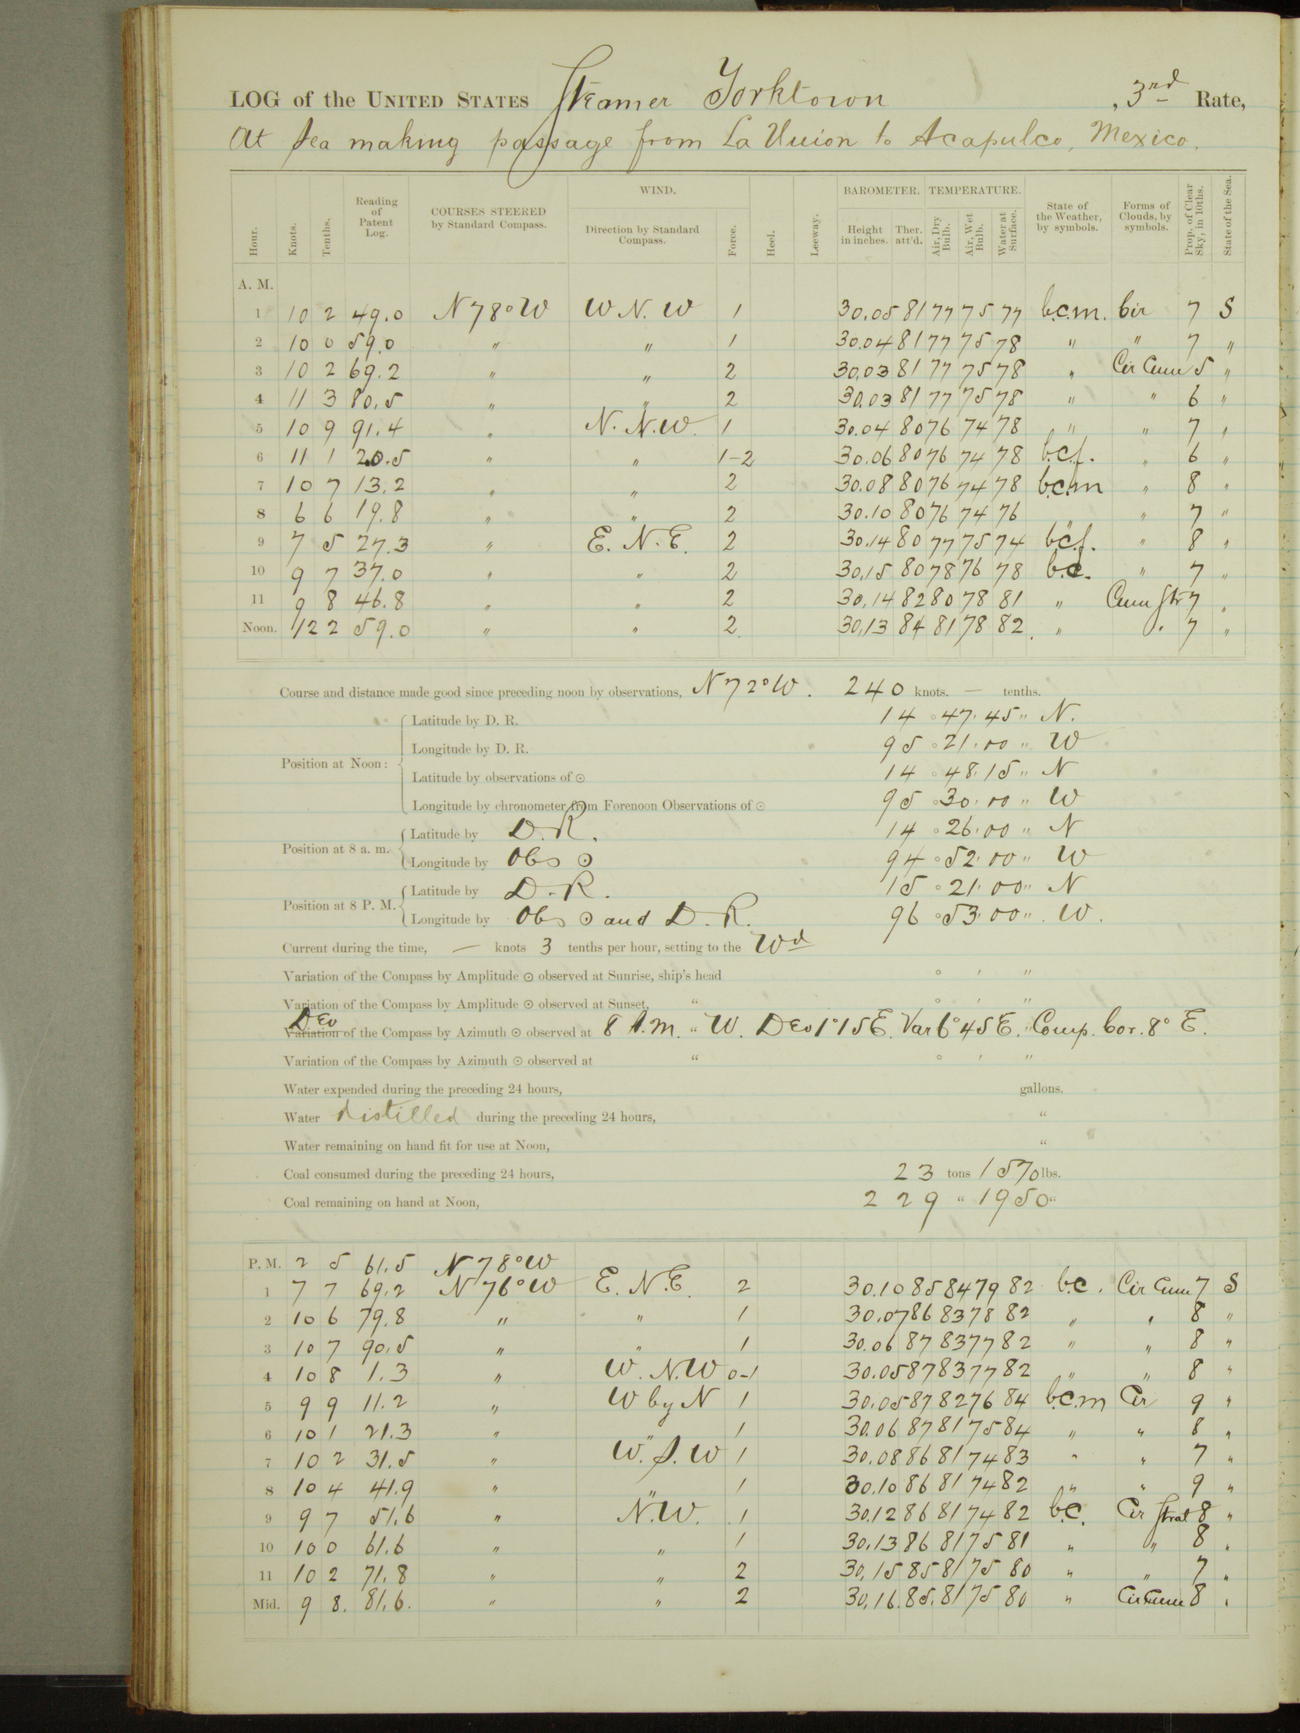 LOG of the UNITED STATES Steamer Yorktown , 3rd Rate,
At Sea making passage from La Union to Acapulco, Mexico.
Hour. Knots. Tenths. Reading of Patent Log. COURSES STEERED by Standard Compass. WIND. Direction by Standard Compass. Force. Heel. Leeway. BAROMETER. Height in inches. Ther. att'd. TEMPERATURE. Air, Dry Bulb. Air, Wet Bulb. Water at Surface. State of the Weather, by symbols. Forms of Clouds, by symbols. Prop. of Clear Sky, in 10ths. State of the Sea.
A. M.
1 10 2 49.0 N 78° W W N. W 1 30.05 81 77 75 77 b.c.m. Cir 7 S
2 10 0 59.0 " " 1 30.04 81 77 75 78 " " 7 "
3 10 2 69.2 " " 2 30.03 81 77 75 78 " Cir Cum 5 "
4 11 3 80.5 " " 2 30.03 81 77 75 78 " " 6 "
5 10 9 91.4 " N. N.W. 1 30.04 80 76 74 78 " " 7 "
6 11 1 20.5 " " 1-2 30.06 80 76 74 78 b.c.f. " 6 "
7 10 7 13.2 " " 2 30.08 80 76 74 78 b.c.m " 8 "
8 6 6 19.8 " " 2 30.10 80 76 74 76 " " 7 "
9 7 5 27.3 " E. N. E. 2 30.14 80 77 75 74 b.c.f. " 8 "
10 9 7 37.0 " " 2 30.15 80 78 76 78 b.c. " 7 "
11 9 8 46.8 " " 2 30.14 82 80 78 81 " Cum Str 7 "
Noon. 12 2 59.0 " " 2 30.13 84 81 78 82 " " 7 "
Course and distance made good since preceding noon by observations, N 72° W. 240 knots. — tenths.
Position at Noon: Latitude by D. R. 14 ° 47' 45" N.
Longitude by D. R. 95 ° 21' 00" W
Latitude by observations of ☉ 14 ° 48' 15" N
Longitude by chronometer from Forenoon Observations of ☉ 95 ° 30' 00" W
Position at 8 a. m. Latitude by D. R. 14 ° 26' 00" N
Longitude by Obs ☉ 94 ° 52' 00" W
Position at 8 P. M. Latitude by D. R. 15 ° 21' 00" N
Longitude by Obs ☉ and D. R. 96 ° 53' 00" W.
Current during the time, — knots 3 tenths per hour, setting to the Wd
Variation of the Compass by Amplitude ☉ observed at Sunrise, ship's head ° ' "
Variation of the Compass by Amplitude ☉ observed at Sunset, " ° ' "
Dev
Variation of the Compass by Azimuth ☉ observed at 8 A.m. " W. Dev 1° 15 E. Var 6° 45 E. " Comp. Cor. 8° E.
Variation of the Compass by Azimuth ☉ observed at " ° ' "
Water expended during the preceding 24 hours, gallons.
Water distilled during the preceding 24 hours, "
Water remaining on hand fit for use at Noon, "
Coal consumed during the preceding 24 hours, 23 tons 1570 lbs.
Coal remaining on hand at Noon, 229 " 1950 "
P. M. 2 5 61.5 N 78° W
1 7 7 69.2 N 76° W E. N. E. 2 30.10 85 84 79 82 b.c. Cir Cum 7 S
2 10 6 79.8 " " 1 30.07 86 83 78 82 " " 8 "
3 10 7 90.5 " " 1 30.06 87 83 77 82 " " 8 "
4 10 8 1.3 " W. N. W 0-1 30.05 87 83 77 82 " " 8 "
5 9 9 11.2 " W by N 1 30.05 87 82 76 84 b.c.m Cir 9 "
6 10 1 21.3 " " 1 30.06 87 81 75 84 " " 8 "
7 10 2 31.5 " W. S. W 1 30.08 86 81 74 83 " " 7 "
8 10 4 41.9 " " 1 30.10 86 81 74 82 " " 9 "
9 9 7 51.6 " N. W. 1 30.12 86 81 74 82 b.c. Cir Strat 8 "
10 10 0 61.6 " " 1 30.13 86 81 75 81 " " 8 "
11 10 2 71.8 " " 2 30.15 85 81 75 80 " " 7 "
Mid. 9 8. 81.6. " " 2 30.16 85. 81 75 80 " Cir Cum 8 "